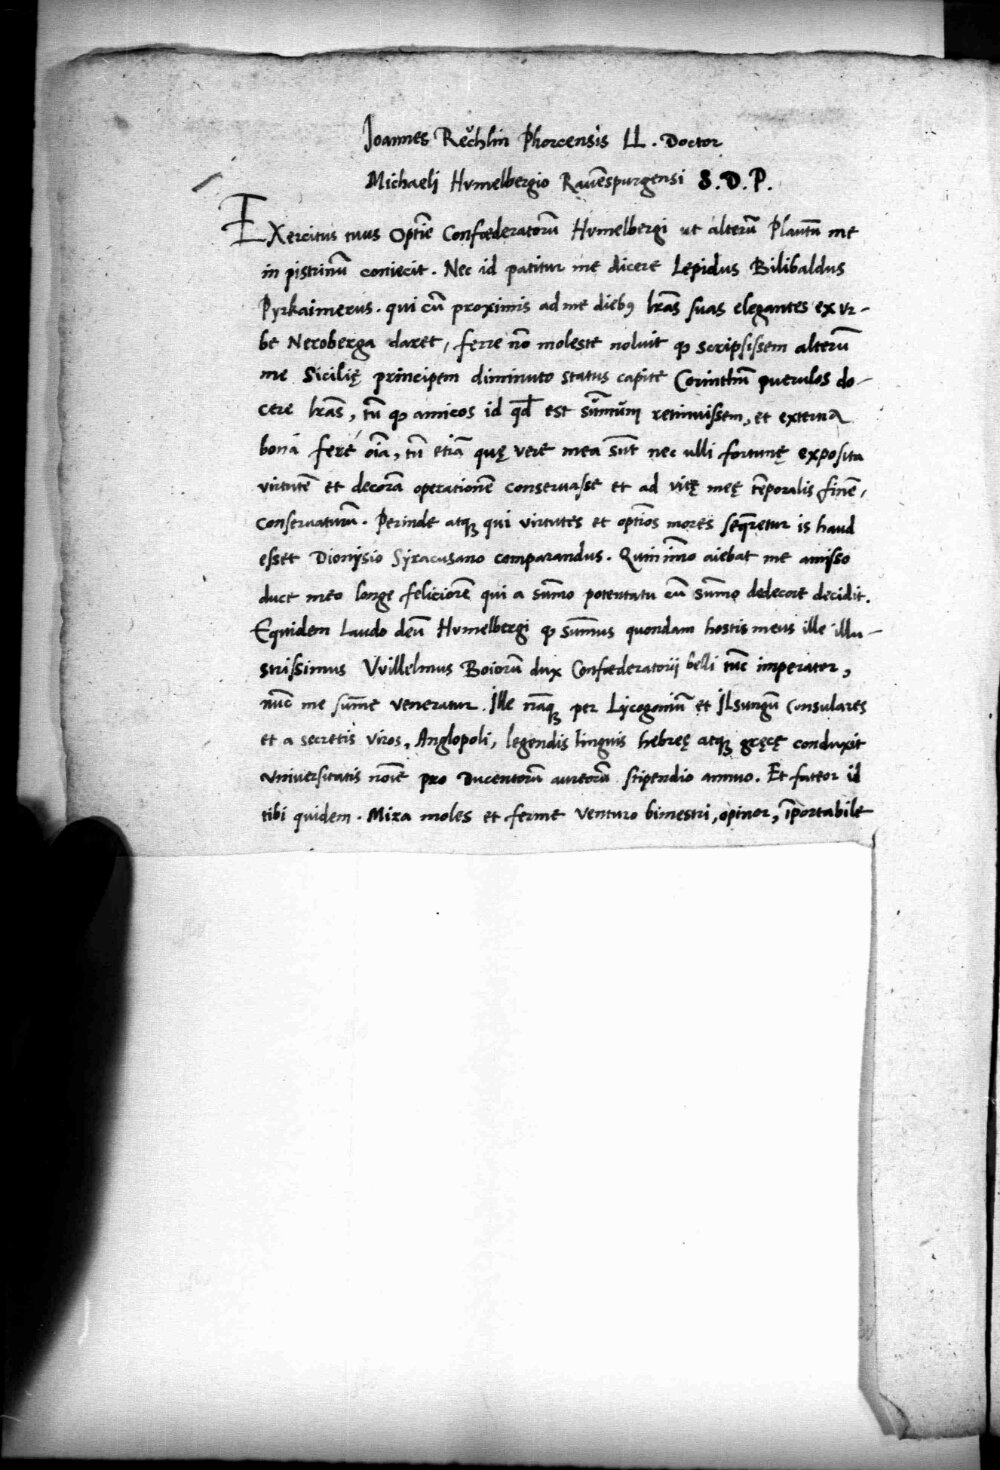 Joannes Reùchlin Phorcensis LL. Doctor
Michaeli Hvmelbergio Rauēspurgensi S.D.P.
EXercitus tuus Optīe Confœderatorū Hvmelbergi ut alterū Plautū me
in pistrinū coniecit. Nec id patitur me dicere Lepidus Bilibaldus
Pyrkaimerus. qui cū proximis ad me diebꝰ lr̄as suas elegantes ex vr-
be Neroberga daret, ferre nō moleste noluit ꝙ scripsissem alterū
me Sicilię principem diminuto status capite Corinthiū puerulos do-
cere lr̄as, tū ꝙ amicos id qd̄ est sūmum retinuissem, et externa
bona fere oīa, tū etiā quę vere mea sūt nec ulli fortunę exposita
virtutē et decorā operationē conseruasse et ad vitę meę tēporalis finē,
conseruaturā. Perinde atqꝫ qui virtutes et optīos mores seq̄retur is haud
esset Dionysio Syracusano comparandus. Quinīmo aiebat me amisso
duce meo longe feliciorē qui a sūmo potentatu cū sūmo dedecore decidit.
Equidem Laudo deū Hvmelbergi ꝙ sūmus quondam hostis meus ille illu-
strissimus Vvillelmus Boiorū dux Confœderatorij belli tūc imperator,
nūc me sūme veneratur. Ille nāqꝫ per Lycogoniū et Jlsungū Consulares
et a secretis viros, Anglopoli, legendis linguis hebrę atqꝫ gręcę conduxit
vniuersitatis noīe pro Ducentorū aureorū stipendio annuo. Et fateor id
tibi quidem. Mira moles et ferme venturo bimestri, opinor, īportabile